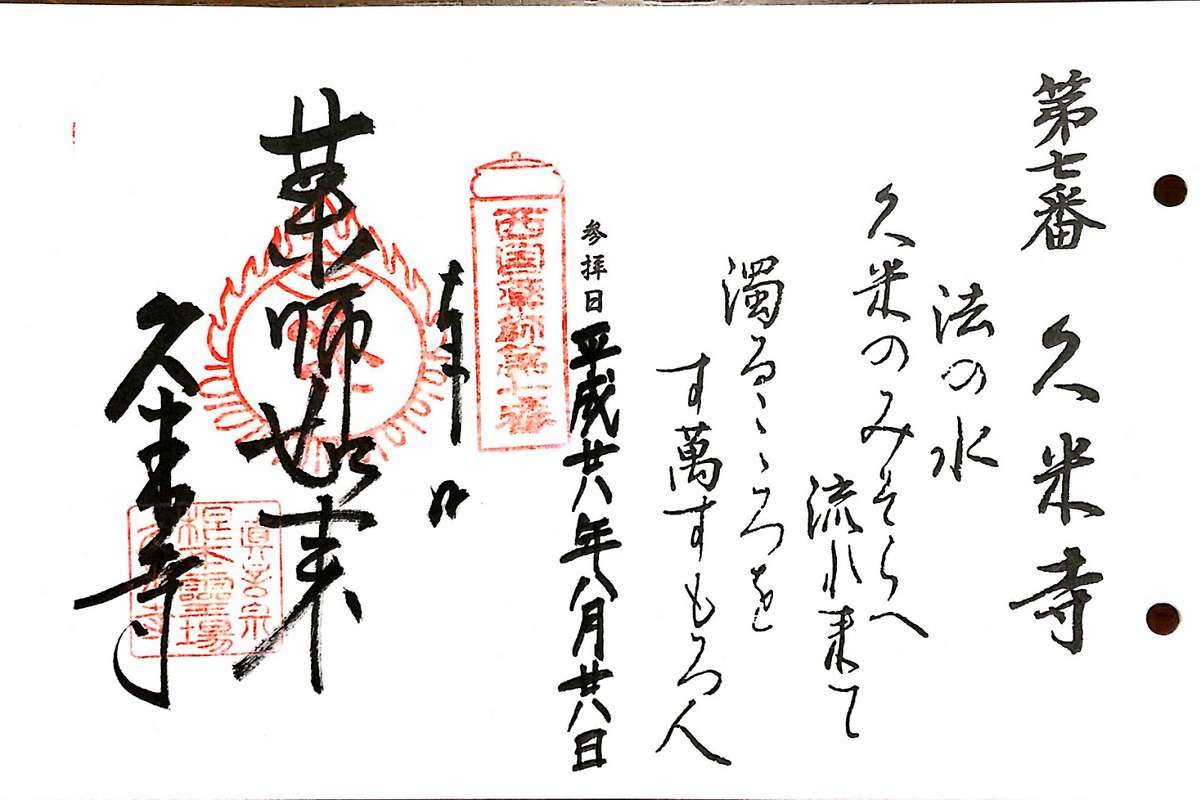 第七番 久米寺
法の水
久米のみそらへ
流れ来て
濁るこゝろを
す萬すもろ人
参拝日 平成廿八年八月廿八日
西国薬師第七番
薬師如来
久米寺
真言宗
根本霊場